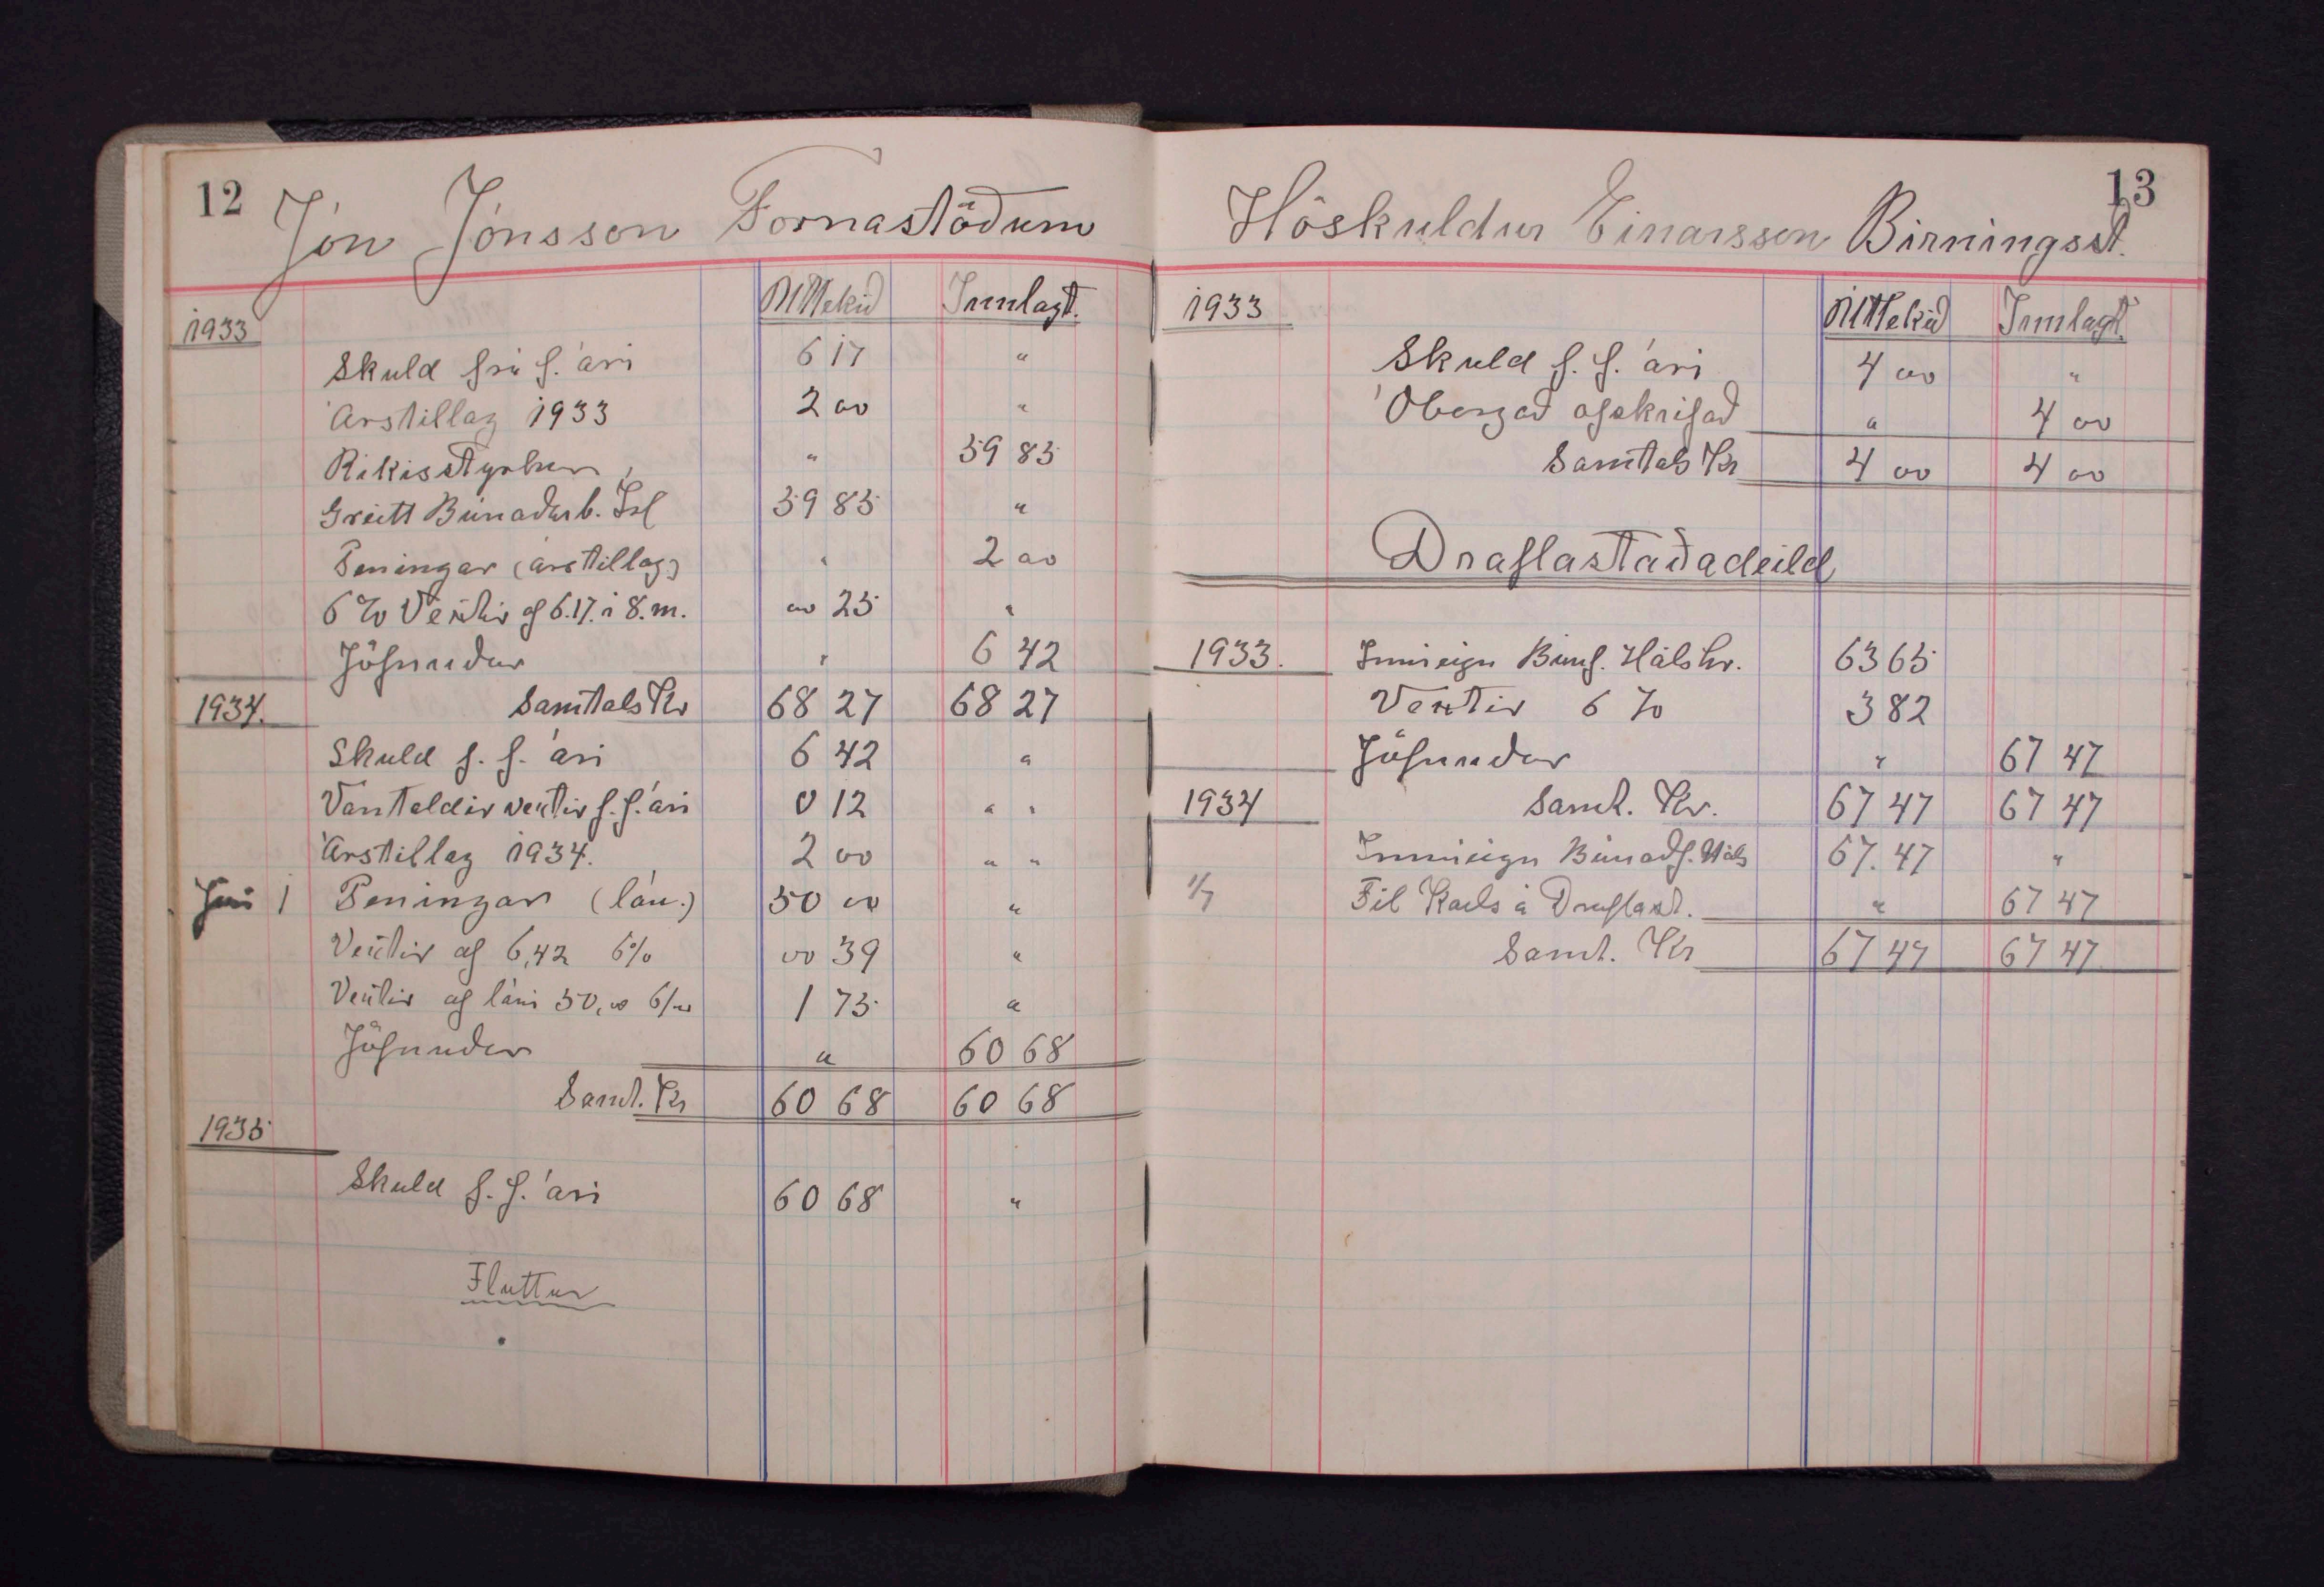 12
Jón Jónsson Fornastöðum
Úttekið Innlagt.
1933
Skuld frá f. ári 6 17 "
Árstillag 1933 2 00 "
Ríkisstyrkur " 59 85
Greitt Búnaðarb. Ísl 59 85 "
Peningar (árstillag) " 2 00
6% Vextir af 6.17. í 8. m. 00 25 "
Jöfnuður " 6 42
1934. Samtals Kr 68 27 68 27
Skuld f. f. ári 6 42 "
Vantaldir vextir f. f. ári 0 12 " "
Árstillag 1934. 2 00 " "
Júní 1 Peningar (lán.) 50 00 "
Vextir af 6,42 6% 00 39 "
Vextir af láni 50,00 6% 1 75 "
Jöfnuður " 60 68
Samt. Kr 60 68 60 68
1935
Skuld f. f. ári 60 68 "
Fluttur
13
Höskuldur Einarsson Birningsst.
1933 Úttekið Innlagt.
Skuld f. f. ári 4 00 "
Óborgað afskrifað " 4 00
Samtals Kr 4 00 4 00
Draflastaðadeild
1933. Innieign Búnf. Hálshr. 63 65
Vextir 6% 3 82
Jöfnuður " 67 47
1934 Samt. Kr. 67 47 67 47
Innieign Búnaðf. Háls 67.47 "
1/7 Til Karls á Draflast. " 67 47
Samt. Kr 67 47 67 47